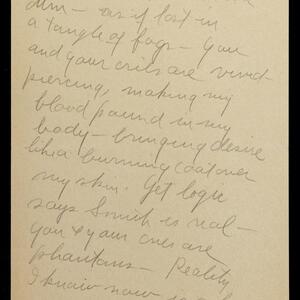 dim — as if lost in
a tangle of fogs — You
and your evils are vivid —
piercing, making my
blood pound in my
body — bringing desire
like a burning coat over
my skin. Yet logic
says Smith is real —
you & your ones are
phantoms — Reality,
I know now